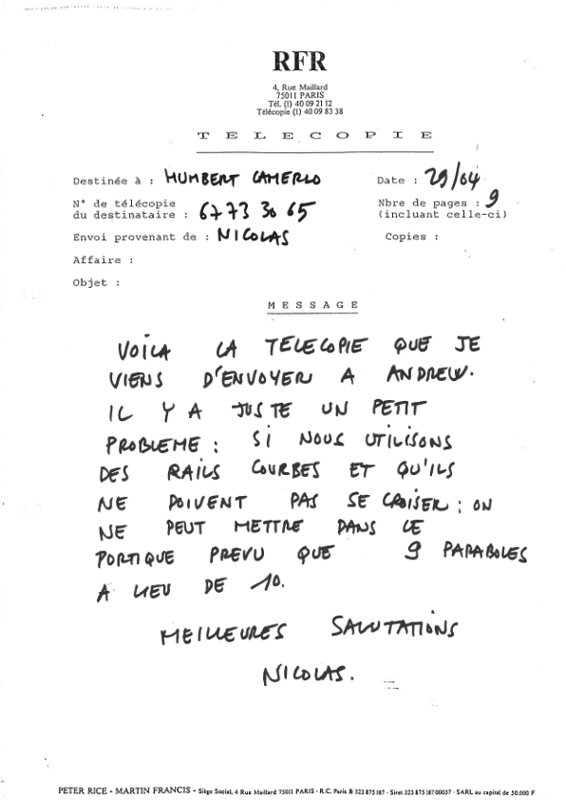 RFR
4, Rue Maillard
75011 PARIS
Tél. (1) 40 09 21 12
Télécopie (1) 40 09 83 38
TELECOPIE
Destinée à : HUMBERT CAMERLO
Date : 29/04
N° de télécopie
du destinataire : 67 73 30 65
Nbre de pages : 9
(incluant celle-ci)
Envoi provenant de : NICOLAS
Copies :
Affaire :
Objet :
MESSAGE
VOILA LA TELECOPIE QUE JE
VIENS D'ENVOYER A ANDREW.
IL Y A JUSTE UN PETIT
PROBLEME : SI NOUS UTILISONS
DES RAILS COURBES ET QU'ILS
NE DOIVENT PAS SE CROISER : ON
NE PEUT METTRE DANS LE
PORTIQUE PREVU QUE 9 PARABOLES
A LIEU DE 10.
MEILLEURES SALUTATIONS
NICOLAS.
PETER RICE - MARTIN FRANCIS - Siège Social, 4 Rue Maillard 75011 PARIS - R.C. Paris B 323 875 187 - Siret 323 875 187 00037 - SARL au capital de 50.000 F